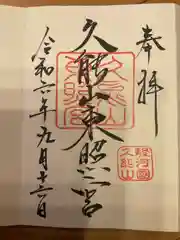 奉拝
久能山東照宮
令和六年九月十六日
駿河國
久能山